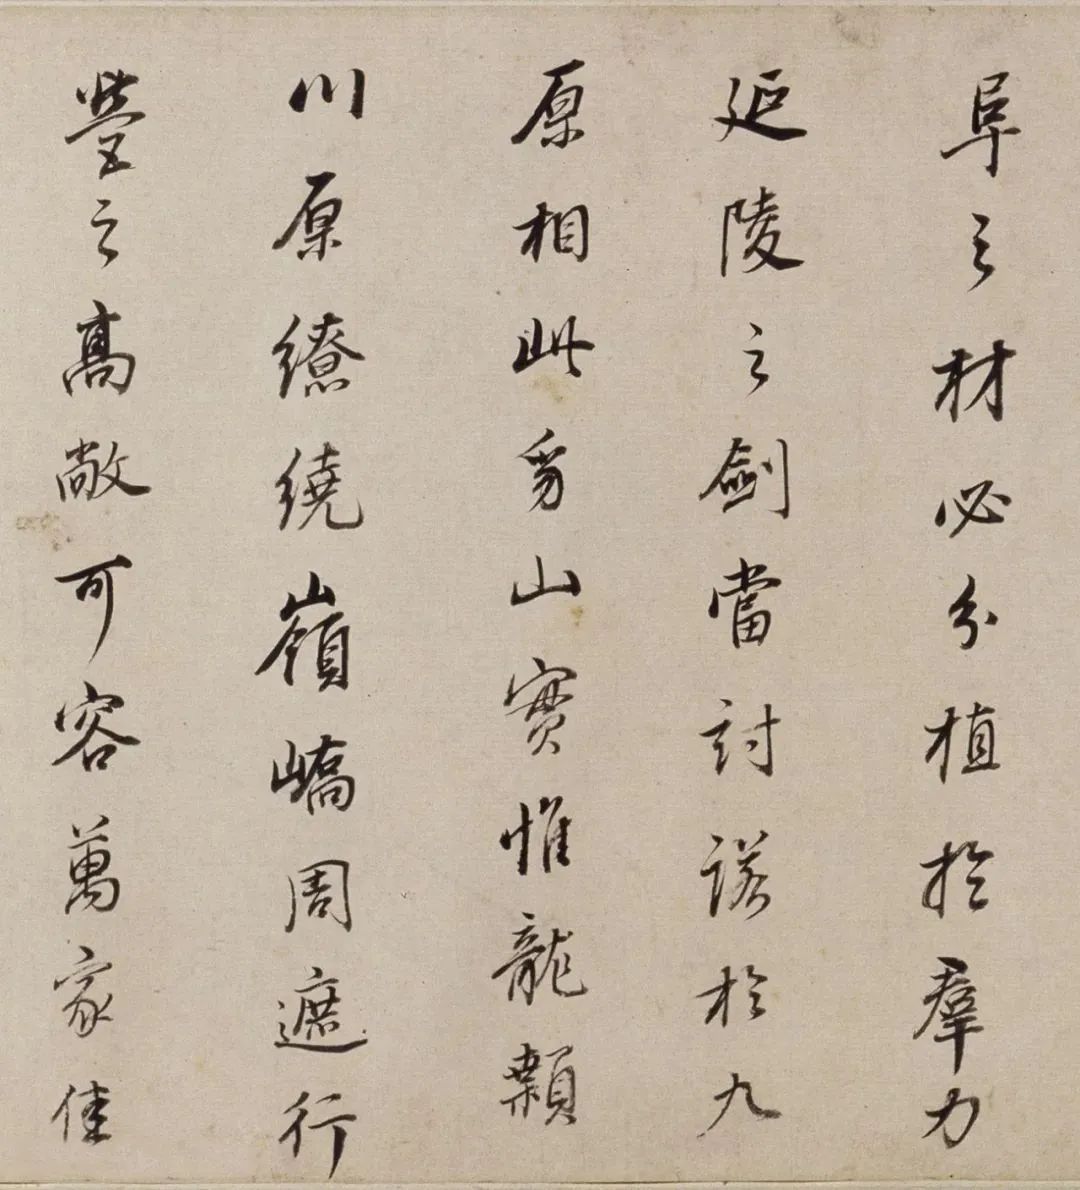 阜之材必分植於羣力
延陵之劍當討諾於九
原相此青山實惟龍顙
川原繚繞嶺嶠周遮行
塋之高敞可容萬家佳